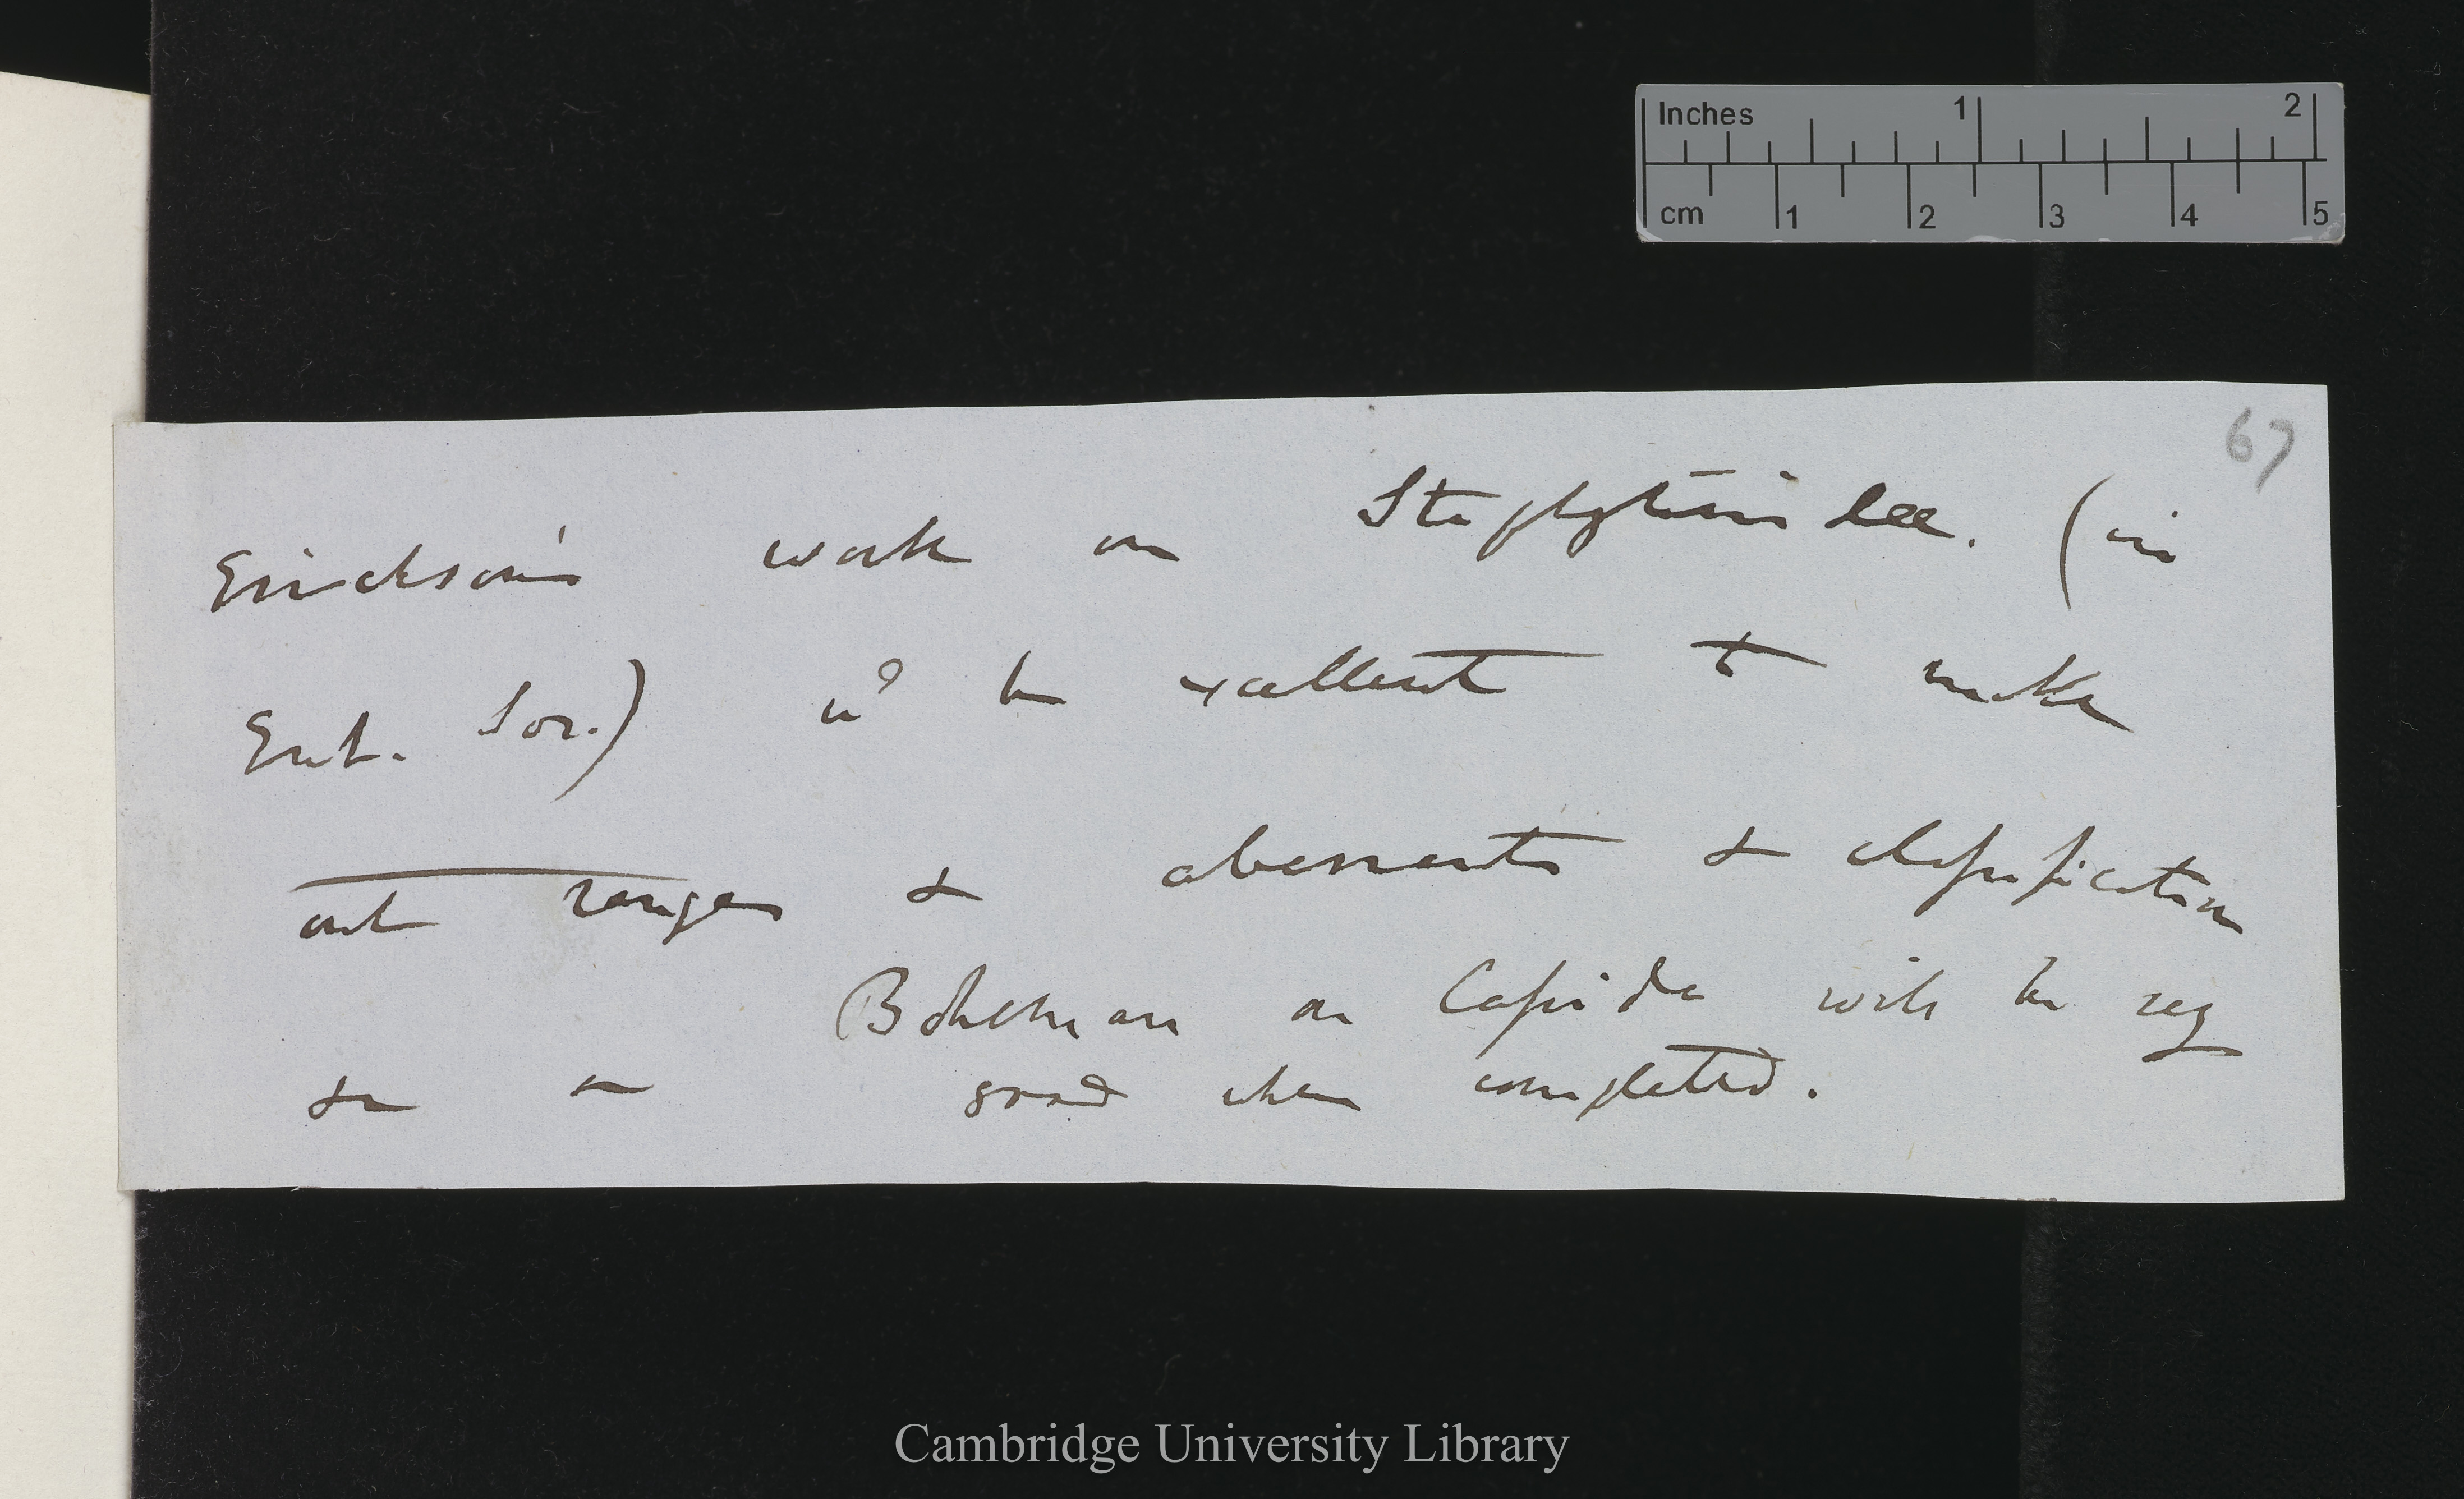 Inches 1 2
cm 1 2 3 4 5
67
Erickson's work on Staphylinidae. (in
Ent. Soc.) wd be excellent to make
out ranges & aberrants & classification
&c Bohemann on Cassida will be very
good when completed.
Cambridge University Library